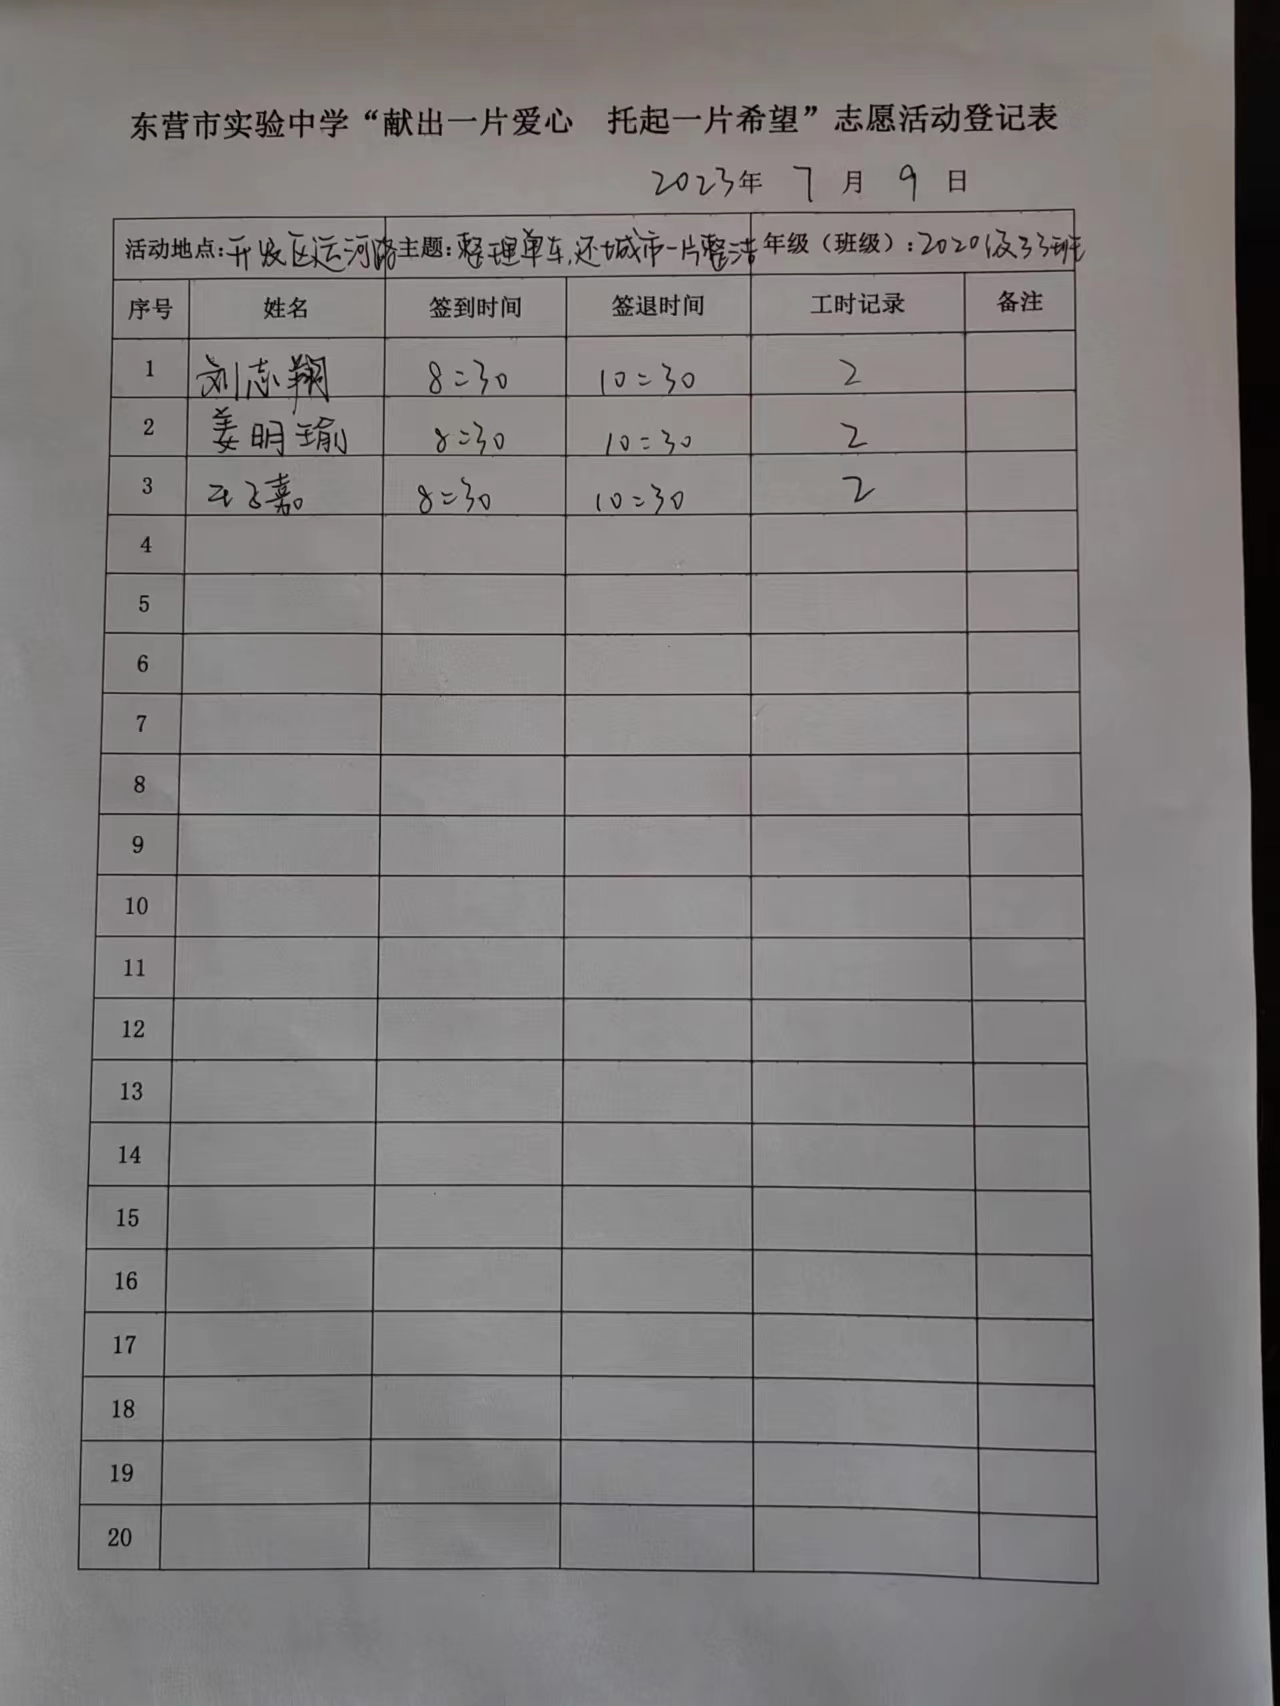 东营市实验中学“献出一片爱心 托起一片希望”志愿活动登记表
2023年 7 月 9 日
活动地点:开发区运河路 主题:整理单车,还城市一片整洁 年级（班级）:2020级33班
序号 姓名 签到时间 签退时间 工时记录 备注
1 刘志翔 8:30 10:30 2
2 姜明瑜 8:30 10:30 2
3 王飞嘉 8:30 10:30 2
4
5
6
7
8
9
10
11
12
13
14
15
16
17
18
19
20